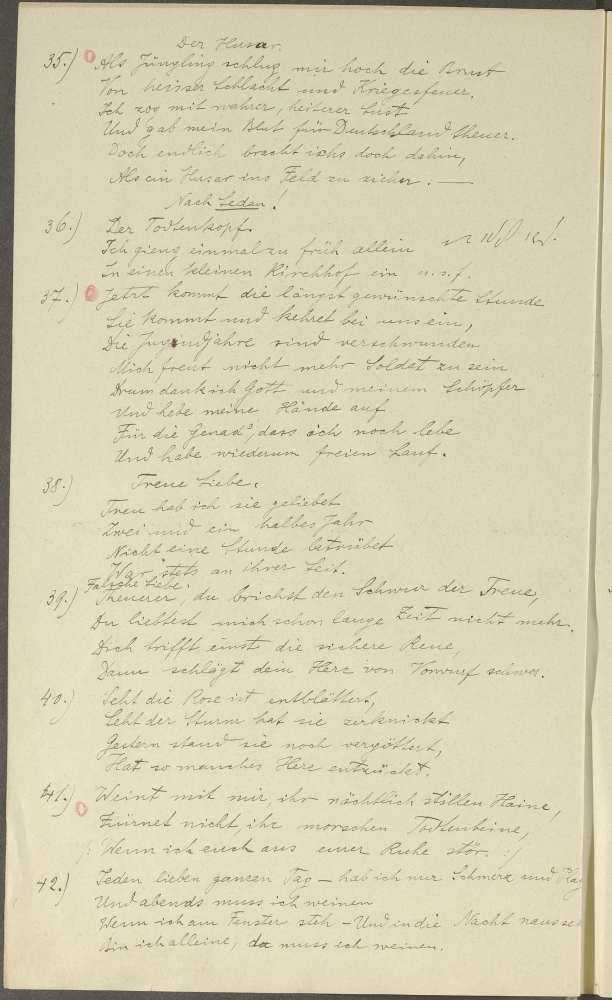 Der Husar.
35.) Als Jüngling schlug mir hoch die Brust
Von heisser Schlacht und Kriegesfeuer.
Ich zog mit wahrer, heiterer Lust
Und gab mein Blut für Deutschland theuer.
Doch endlich bracht ichs doch dahin,
Als ein Husar ins Feld zu ziehen. —
Nach Sedan!
36.) Der Todtenkopf.
Ich gieng einmal zu früh allein
In einen kleinen Kirchhof ein u.s.f.
37.) Jetzt kommt die längst gewünschte Stunde
Sie kommt und kehret bei uns ein,
Die Jugendjahre sind verschwunden
Mich freut nicht mehr Soldat zu sein
Drum dank ich Gott und meinem Schöpfer
Und hebe meine Hände auf
Für die Genad', dass ich noch lebe
Und habe wiederum freien Lauf.
38.) Treue Liebe.
Treu hab ich sie geliebet
Zwei und ein halbes Jahr
Nicht eine Stunde betrübet
War stets an ihrer Seit.
Falsche Liebe.
39.) Theuerer, du brichst den Schwur der Treue,
Du liebtest mich schon lange Zeit nicht mehr.
Dich trifft einst die sichere Reue,
Dann schlägt dein Herz von Vorwurf schwer.
40.) Seht die Rose ist entblättert,
Seht der Sturm hat sie zerknickt
Gestern stand sie noch vergöttert,
Hat so manches Herz entzückt.
41.) Weint mit mir, ihr nächtlich stillen Haine,
Zürnet nicht, ihr morschen Todtenbeine,
/: Wenn ich euch aus eurer Ruhe stör. :/
42.) Jeden lieben ganzen Tag – hab ich nur Schmerz und
Und abends muss ich weinen
Wenn ich am Fenster steh – Und in die Nacht naus seh
Bin ich alleine, da muss ich weinen.